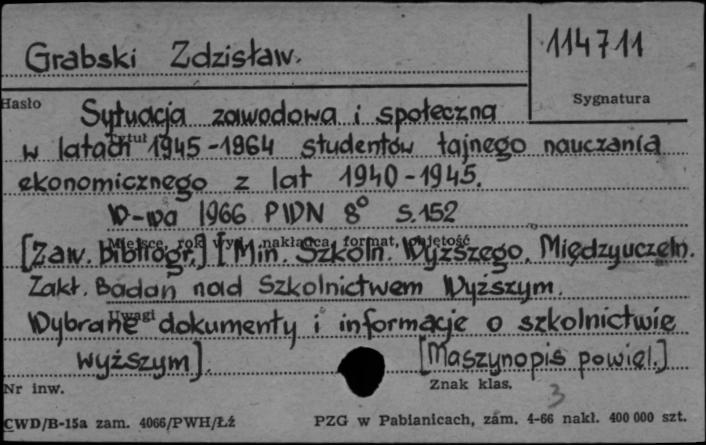 Grabski Zdzisław.
114711
Hasło
Sygnatura
Sytuacja zawodowa i społeczna
Tytuł
w latach 1945-1964 studentów tajnego nauczania
ekonomicznego z lat 1940-1945.
W-wa 1966 PWN 8° s. 152
Miejsce, rok wyd., nakładca, format, objętość
[Zaw. bibliogr.] [Min. Szkoln. Wyższego. Międzyuczeln.
Zakł. Badań nad Szkolnictwem Wyższym.
Uwagi
Wybrane dokumenty i informacje o szkolnictwie
wyższym]. [Maszynopis powiel.]
Nr inw.
Znak klas.
3
CWD/B-15a zam. 4066/PWH/Łź
PZG w Pabianicach, zam. 4-66 nakł. 400 000 szt.